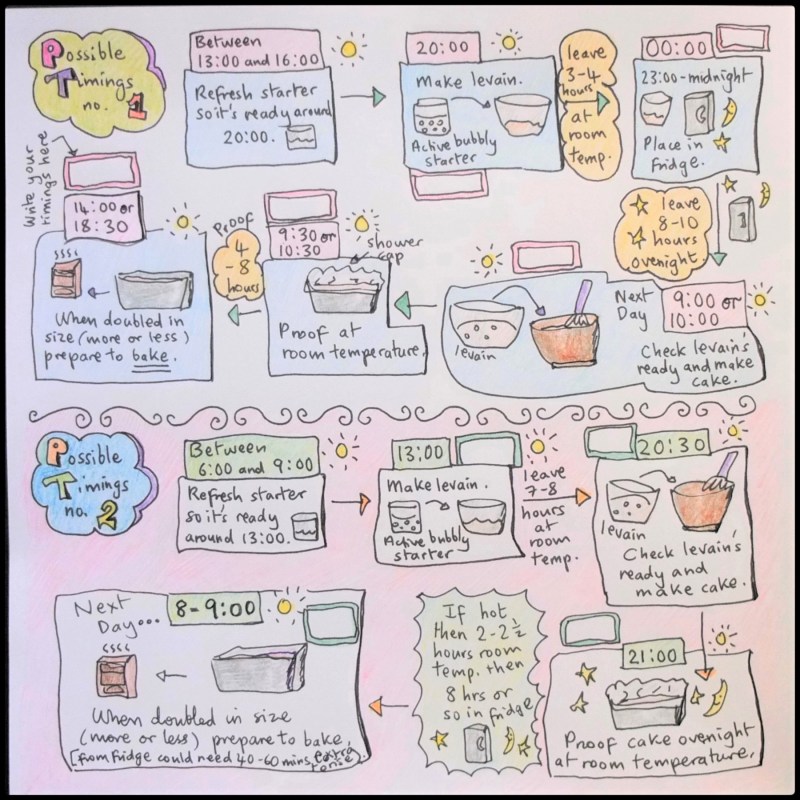 Possible
Timings
no. 1
Between
13:00 and 16:00
Refresh starter
so it's ready around
20:00.
20:00
Make levain.
Active bubbly
starter
leave
3-4
hours
at
room
temp.
00:00
23:00-midnight
Place in
fridge.
leave
8-10
hours
ovenight.
Next
Day
9:00 or
10:00
levain
Check levain's
ready and make
cake.
9:30 or
10:30
shower
cap
Proof at
room temperature.
Proof
4
-8
hours
Write your
timings here
14:00 or
18:30
When doubled in
size (more or less)
prepare to bake.
Possible
Timings
no. 2
Between
6:00 and 9:00
Refresh starter
so it's ready
around 13:00.
13:00
Make levain.
Active bubbly
starter
leave
7-8
hours
at
room
temp.
20:30
levain
Check levain's
ready and
make cake.
21:00
Proof cake ovenight
at room temperature.
If hot
then 2-2½
hours room
temp. then
8 hrs or
so in fridge
Next
Day...
8-9:00
When doubled in size
(more or less) prepare to bake.
[from fridge could need 40-60 mins extra